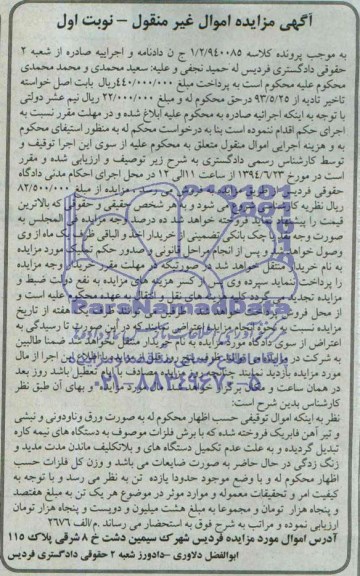 آگهی مزایده اموال غیر منقول – نوبت اول
به موجب پرونده کلاسه ۱/۲/۹۴۰۰۸۵ ج ن دادنامه و اجراییه صادره از شعبه ۲
حقوقی دادگستری فردیس له حمید نجفی و علیه: سعید محمدی و محمد محمدی
محکوم علیه محکوم است به پرداخت مبلغ ۴۴۰/۰۰۰/۰۰۰ریال بابت اصل خواسته
تاخیر تادیه از ۹۳/۵/۲۵ درحق محکوم له و مبلغ ۲۲/۰۰۰/۰۰۰ ریال نیم عشر دولتی
با توجه به اینکه اجرائیه صادره به محکوم علیه ابلاغ شده و در مهلت مقرر نسبت به
اجرای حکم اقدام ننموده است بنا به درخواست محکم له به منظور استیفای محکوم
به و هزینه اجرایی اموال متعلق به محکوم علیه از سوی این اجرا توقیف و
توسط کارشناس رسمی دادگستری به شرح زیر توصیف و ارزیابی شده و مقرر
است در مورخ ۱۳۹۴/۶/۲۳ از ساعت ۱۱الی ۱۲ در محل اجرای احکام مدنی دادگاه
حقوقی فردیس از طریق مزایده به فروش می رسد. مزایده از مبلغ ۸۲/۵۰۰/۰۰۰
ریال نظریه کارشناسی شروع می شود و به هر شخص حقیقی و حقوقی که بالاترین
قیمت را پیشنهاد نماید فروخته خواهد شد ده درصد وجه مزایده فی المجلس به
صورت وجه نقد یا چک بانکی تضمینی از خریدار اخذ و الباقی ظرف یک ماه از وی
وصول خواهد شد و پس از انجام مراحل قانونی و صدور حکم تملیک مورد مزایده
به نام خریدار منتقل خواهد شد در صورتیکه در مهلت مقرر خریدار وجه مزایده
را پرداخت ننماید سپرده وی پس از کسر هزینه های مزایده به نفع دولت ضبط و
مزایده تجدید می گردد کلیه هزینه های نقل و انتقال به عهده محکوم علیه است و
از محل فروش
مزایده نسبت به نحوه انجام مزایده اعتراض نمایند که در این صورت تا رسیدگی به
اعتراض از سوی دادگاه مورد مزایده به نام خریدار منتقل نخواهد شد ضمنا طالبین
به شرکت در مزایده
مورد مزایده بازدید نمایند چنانچه روز مزایده مصادف با ایام تعطیل باشد روز بعد
در همان ساعت و مکان برگزار خواهد شد مشخصات مورد مزایده و بهای آن طبق نظر
کارشناس بدین شرح است:
نظر به اینکه اموال توقیفی حسب اظهار محکوم له به صورت ورق وناودونی و نبشی
و تیر آهن فابریک فروخته شده که با برش فلزات موصوف به دستگاه های نیمه کاره
تبدیل گردیده و به علت عدم تکمیل دستگاه های و بلاتکلیف ماندن مدت مدید و
زنگ زدگی در حال حاضر به صورت ضایعات می باشد و وزن کل فلزات حسب
اظهار محکوم له و با وضع موجود حدودا یازده تن به نظر می رسد و با توجه به
کیفیت امر و تحقیقات معموله و موارد موثر در موضوع هر یک تن به مبلغ هفتصد
و پنجاه هزار تومان و مجموعا به مبلغ هشت میلیون و دویست و پنجاه هزار تومان
ارزیابی نموده و مراتب به شرح فوق به استحضار می رساند .م/الف ۲۶۷۶
آدرس اموال مورد مزایده فردیس شهرک سیمین دشت خ ۸ شرقی پلاک ۱۱۵
ابوالفضل دلاوری –دادورز شعبه ۲ حقوقی دادگستری فردیس
ParsNamadData
۰۲۱-۸۸۳۴۹۶۷۰-۵